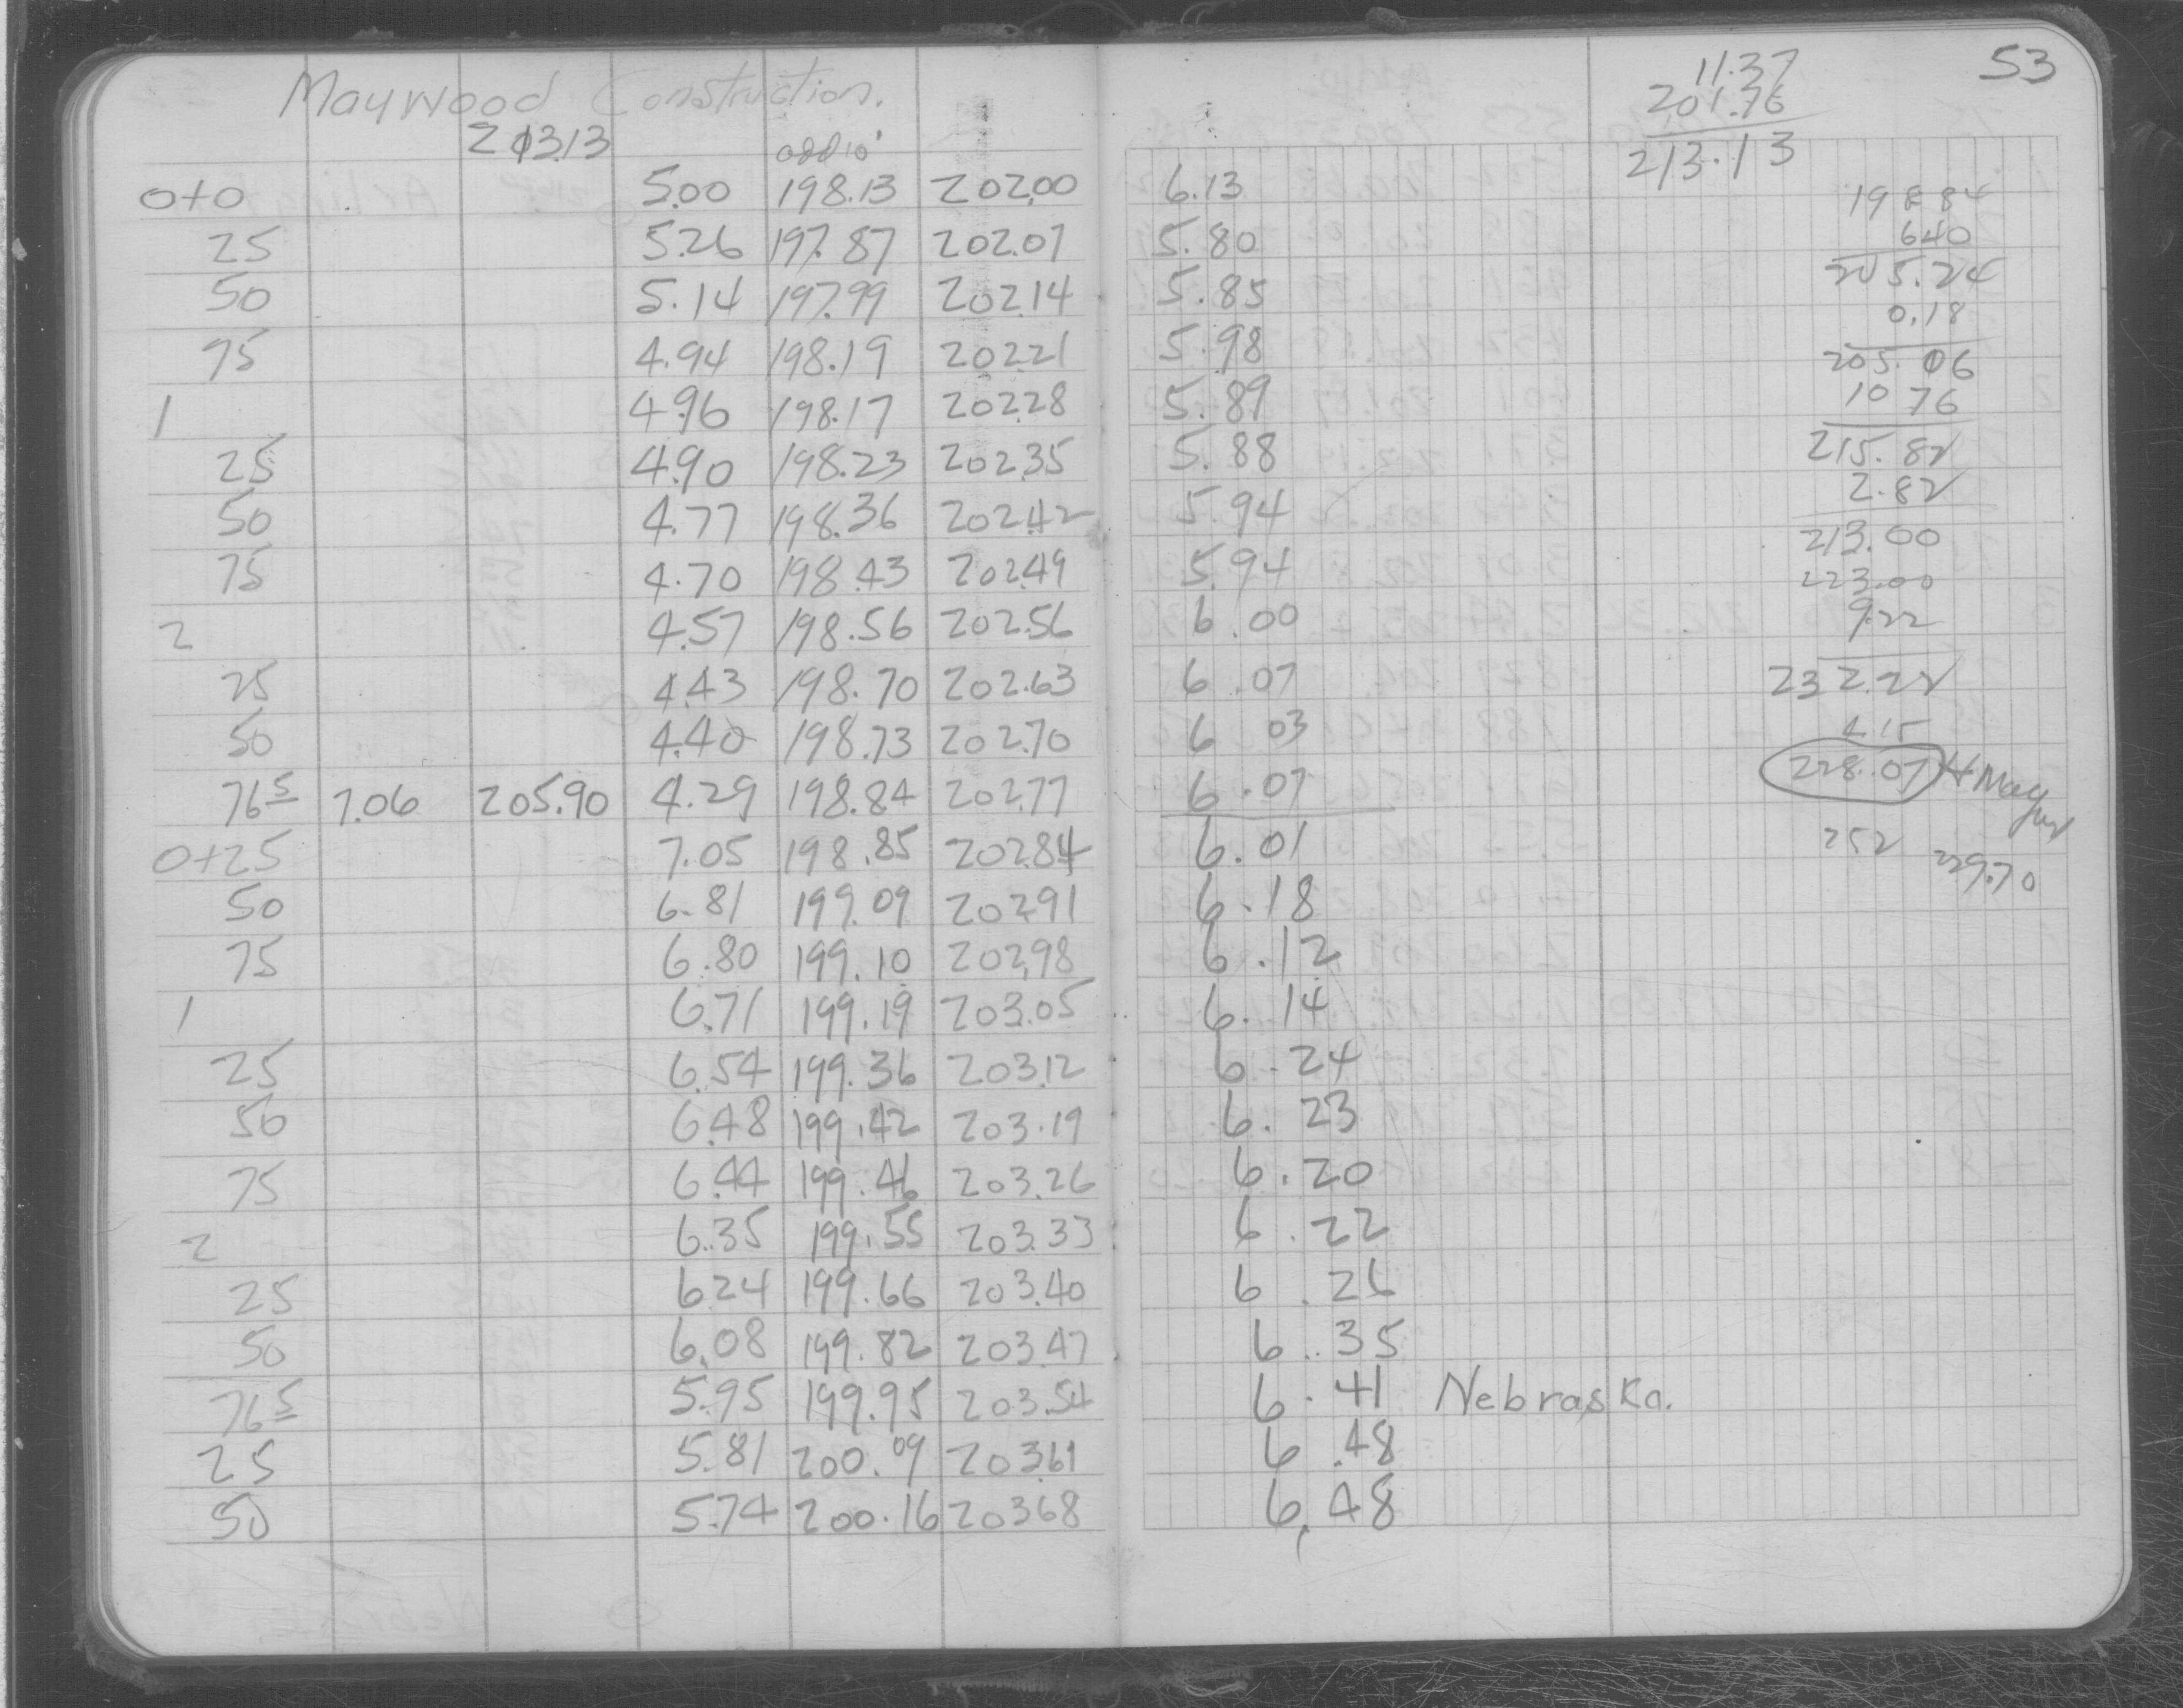 53
Maywood Construction.
213.13
add 10'
0+0 5.00 198.13 202.00 6.13
25 5.26 197.87 202.07 5.80
50 5.14 197.99 202.14 5.85
75 4.94 198.19 202.21 5.98
1 4.96 198.17 202.28 5.89
25 4.90 198.23 202.35 5.88
50 4.77 198.36 202.42 5.94
75 4.70 198.43 202.49 5.94
2 4.57 198.56 202.56 6.00
25 4.43 198.70 202.63 6.07
50 4.40 198.73 202.70 6 03
76 5 7.06 205.90 4.29 198.84 202.77 6.07
0+25 7.05 198.85 202.84 6.01
50 6.81 199.09 202.91 6.18
75 6.80 199.10 202.98 6.12
1 6.71 199.19 203.05 6.14
25 6.54 199.36 203.12 6.24
50 6.48 199.42 203.19 6.23
75 6.44 199.46 203.26 6.20
2 6.35 199.55 203.33 6.22
25 6.24 199.66 203.40 6.26
50 6.08 199.82 203.47 6.35
76 5 5.95 199.95 203.54 6.41 Nebraska.
25 5.81 200.09 203.61 6.48
50 5.74 200.16 203.68 6.48
11.37
201.76
213.13
198 84
640
205.24
0.18
205.06
10 76
215.82
2.82
213.00
223.00
9.22
232.22
4.15
228.07
252 229.70